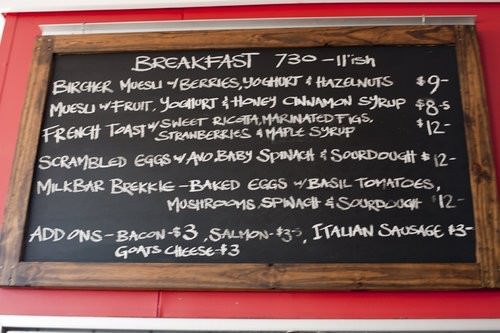 BREAKFAST 730 - 11'ish
BIRCHER MUESLI w/ BERRIES, YOGHURT & HAZELNUTS $9-
MUESLI w/ FRUIT, YOGHURT & HONEY CINNAMON SYRUP $8.5
FRENCH TOAST w/ SWEET RICOTTA, MARINATED FIGS, $12-
STRAWBERRIES & MAPLE SYRUP
SCRAMBLED EGGS w/ AVO, BABY SPINACH & SOURDOUGH $12-
MILKBAR BREKKIE - BAKED EGGS w/ BASIL TOMATOES,
MUSHROOMS, SPINACH & SOURDOUGH $12-
ADD ONS - BACON-$3, SALMON-$3.5, ITALIAN SAUSAGE $3-
GOATS CHEESE-$3